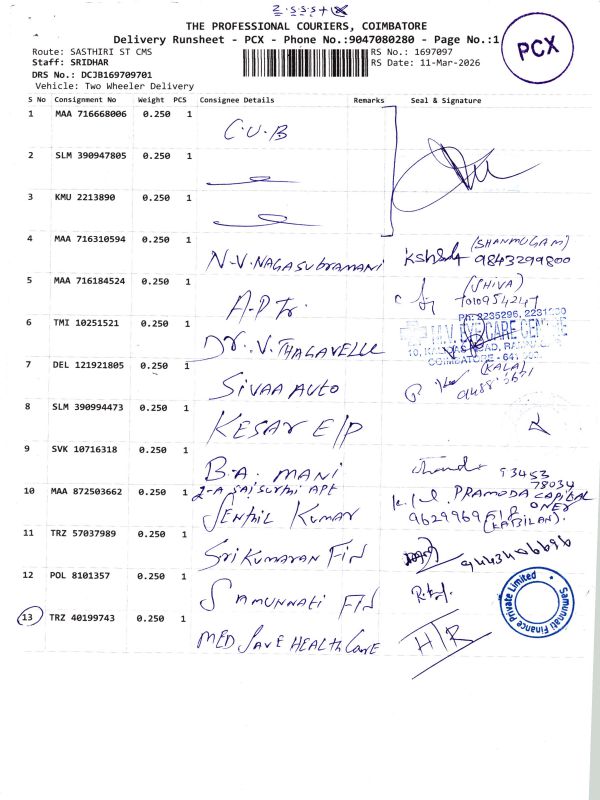 THE PROFESSIONAL COURIERS, COIMBATORE
Delivery Runsheet - PCX - Phone No.:9047080280 - Page No.:1
PCX
Route: SASTHIRI ST CMS
RS No.: 1697097
Staff: SRIDHAR
RS Date: 11-Mar-2026
DRS No.: DCJB169709701
Vehicle: Two Wheeler Delivery
S No Consignment No Weight PCS Consignee Details Remarks Seal & Signature
1 MAA 716668006 0.250 1 C.U.B
2 SLM 390947805 0.250 1
3 KMU 2213890 0.250 1
4 MAA 716310594 0.250 1 N.V. NAGASUbramani (SHANMUGAM) 9843299800
5 MAA 716184524 0.250 1 A.P Tr. (SHIVA)
6 TMI 10251521 0.250 1 Dr. V. THALAVELLU
Ph: 2235296,
M.V. EYE CARE CENTRE
COIMBATORE - 641
7 DEL 121921805 0.250 1 SIVAA AUTO (KALAI)
8 SLM 390994473 0.250 1 KESAR E/P
9 SVK 10716318 0.250 1 B.A. MANI 93453 78034
10 MAA 872503662 0.250 1 2-A Saisurthi APt
SENTHIL KUMAR PRAMODA CAPITAL
ONER
(KABILAN).
11 TRZ 57037989 0.250 1 Sri Kumaran FIN
12 POL 8101357 0.250 1 SAMUNNATI FIN
Samunnati Finance Private Limited
13 TRZ 40199743 0.250 1 MED SAVE HEALTH CARE H/R